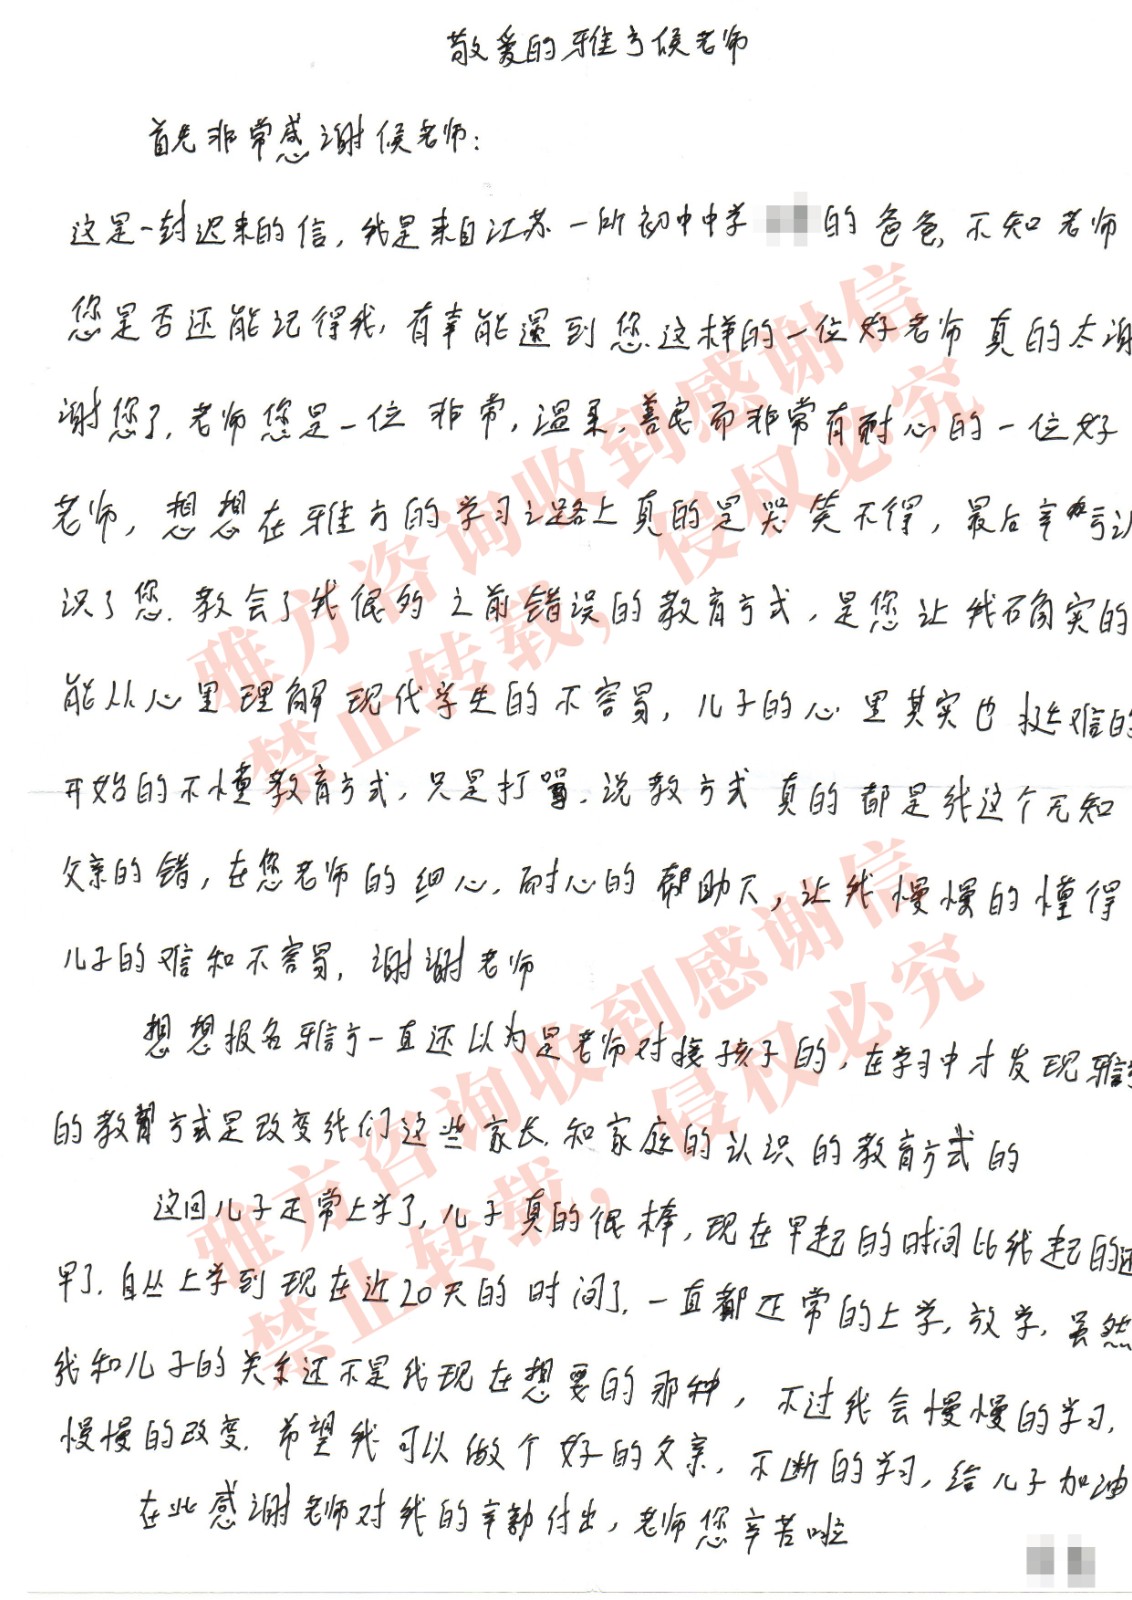 敬爱的雅方候老师
首先非常感谢候老师：
这是一封迟来的信，我是来自江苏一所初中中学 的爸爸，不知老师
您是否还能记得我，有幸能遇到您这样的一位好老师真的太谢
谢您了，老师您是一位非常，温柔，善良而非常有耐心的一位好
老师，想想在雅方的学习之路上真的是哭笑不得，最后幸亏认
识了您，教会了我很多之前错误的教育方式，是您让我确实的
能从心里理解现代学生的不容易，儿子的心里其实也挺难的
开始的不懂教育方式，只是打骂，说教方式真的都是我这个无知
父亲的错，在您老师的细心，耐心的帮助下，让我慢慢的懂得
儿子的难和不容易，谢谢老师
想想报名雅方一直还以为是老师对接孩子的，在学习中才发现雅
的教育方式是改变我们这些家长，和家庭的认识的教育方式的
这回儿子正常上学了，儿子真的很棒，现在早起的时间比我起的还
早了，自从上学到现在近20天的时间了，一直都正常的上学，放学，虽然
我和儿子的关系还不是我现在想要的那种，不过我会慢慢的学习，
慢慢的改变，希望我可以做个好的父亲，不断的学习，给儿子加油
在此感谢老师对我的辛勤付出，老师您辛苦啦
雅方咨询收到感谢信
禁止转载，侵权必究
雅方咨询收到感谢信
禁止转载，侵权必究